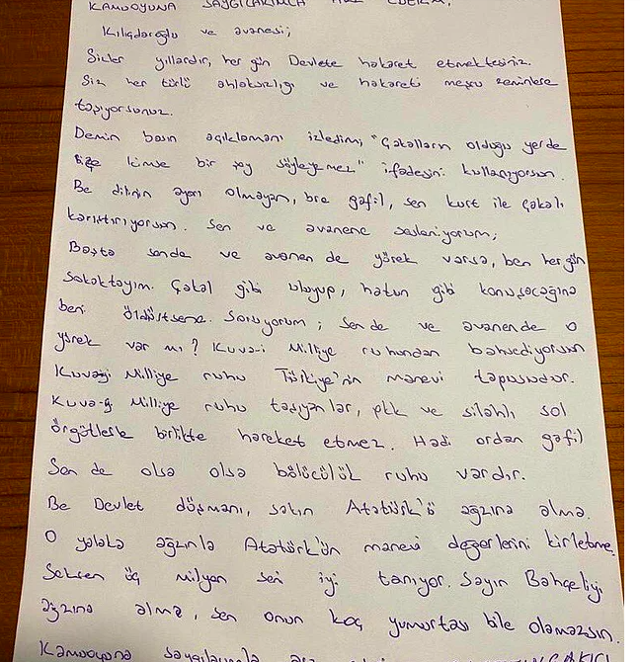 KAMUOYUNA SAYGILARIMLA
Kılıçdaroğlu ve avanesi;
Sizler yıllardır, her gün Devlete hakaret etmektesiniz.
Siz her türlü ahlaksızlığı ve hakareti meşru zeminlere
taşıyorsunuz.
Demin basın açıklamanı izledim, "Çakalların olduğu yerde
bize kimse bir şey söyleyemez" ifadesini kullanıyorsun.
Be dilinin ayarı olmayan, bre gafil, sen kurt ile çakalı
karıştırıyorsun. Sen ve avanene sesleniyorum;
Başta sende ve avanen de yürek varsa, ben her gün
sokaktayım. Çakal gibi uluyup, hatun gibi konuşacağına
beni öldürtsene. Soruyorum; sende ve avanende o
yürek var mı? Kuva-i Milliye ruhundan bahsediyorsun
Kuvayi Milliye ruhu Türkiye'nin manevi tapusudur.
Kuva-yi Milliye ruhu taşıyanlar, pkk ve silahlı sol
örgütlerle birlikte hareket etmez. Hadi ordan gafil
Sen de olsa olsa bölücülük ruhu vardır.
Be Devlet düşmanı, sakın Atatürk'ü ağzına alma.
O yalaka ağzınla Atatürk'ün manevi değerlerini kirletme.
Seksen üç milyon seni iyi tanıyor. Sayın Bahçeliyi
ağzına alma, sen onun koç yumurtası bile olamazsın.
Kamuoyuna saygılarımla